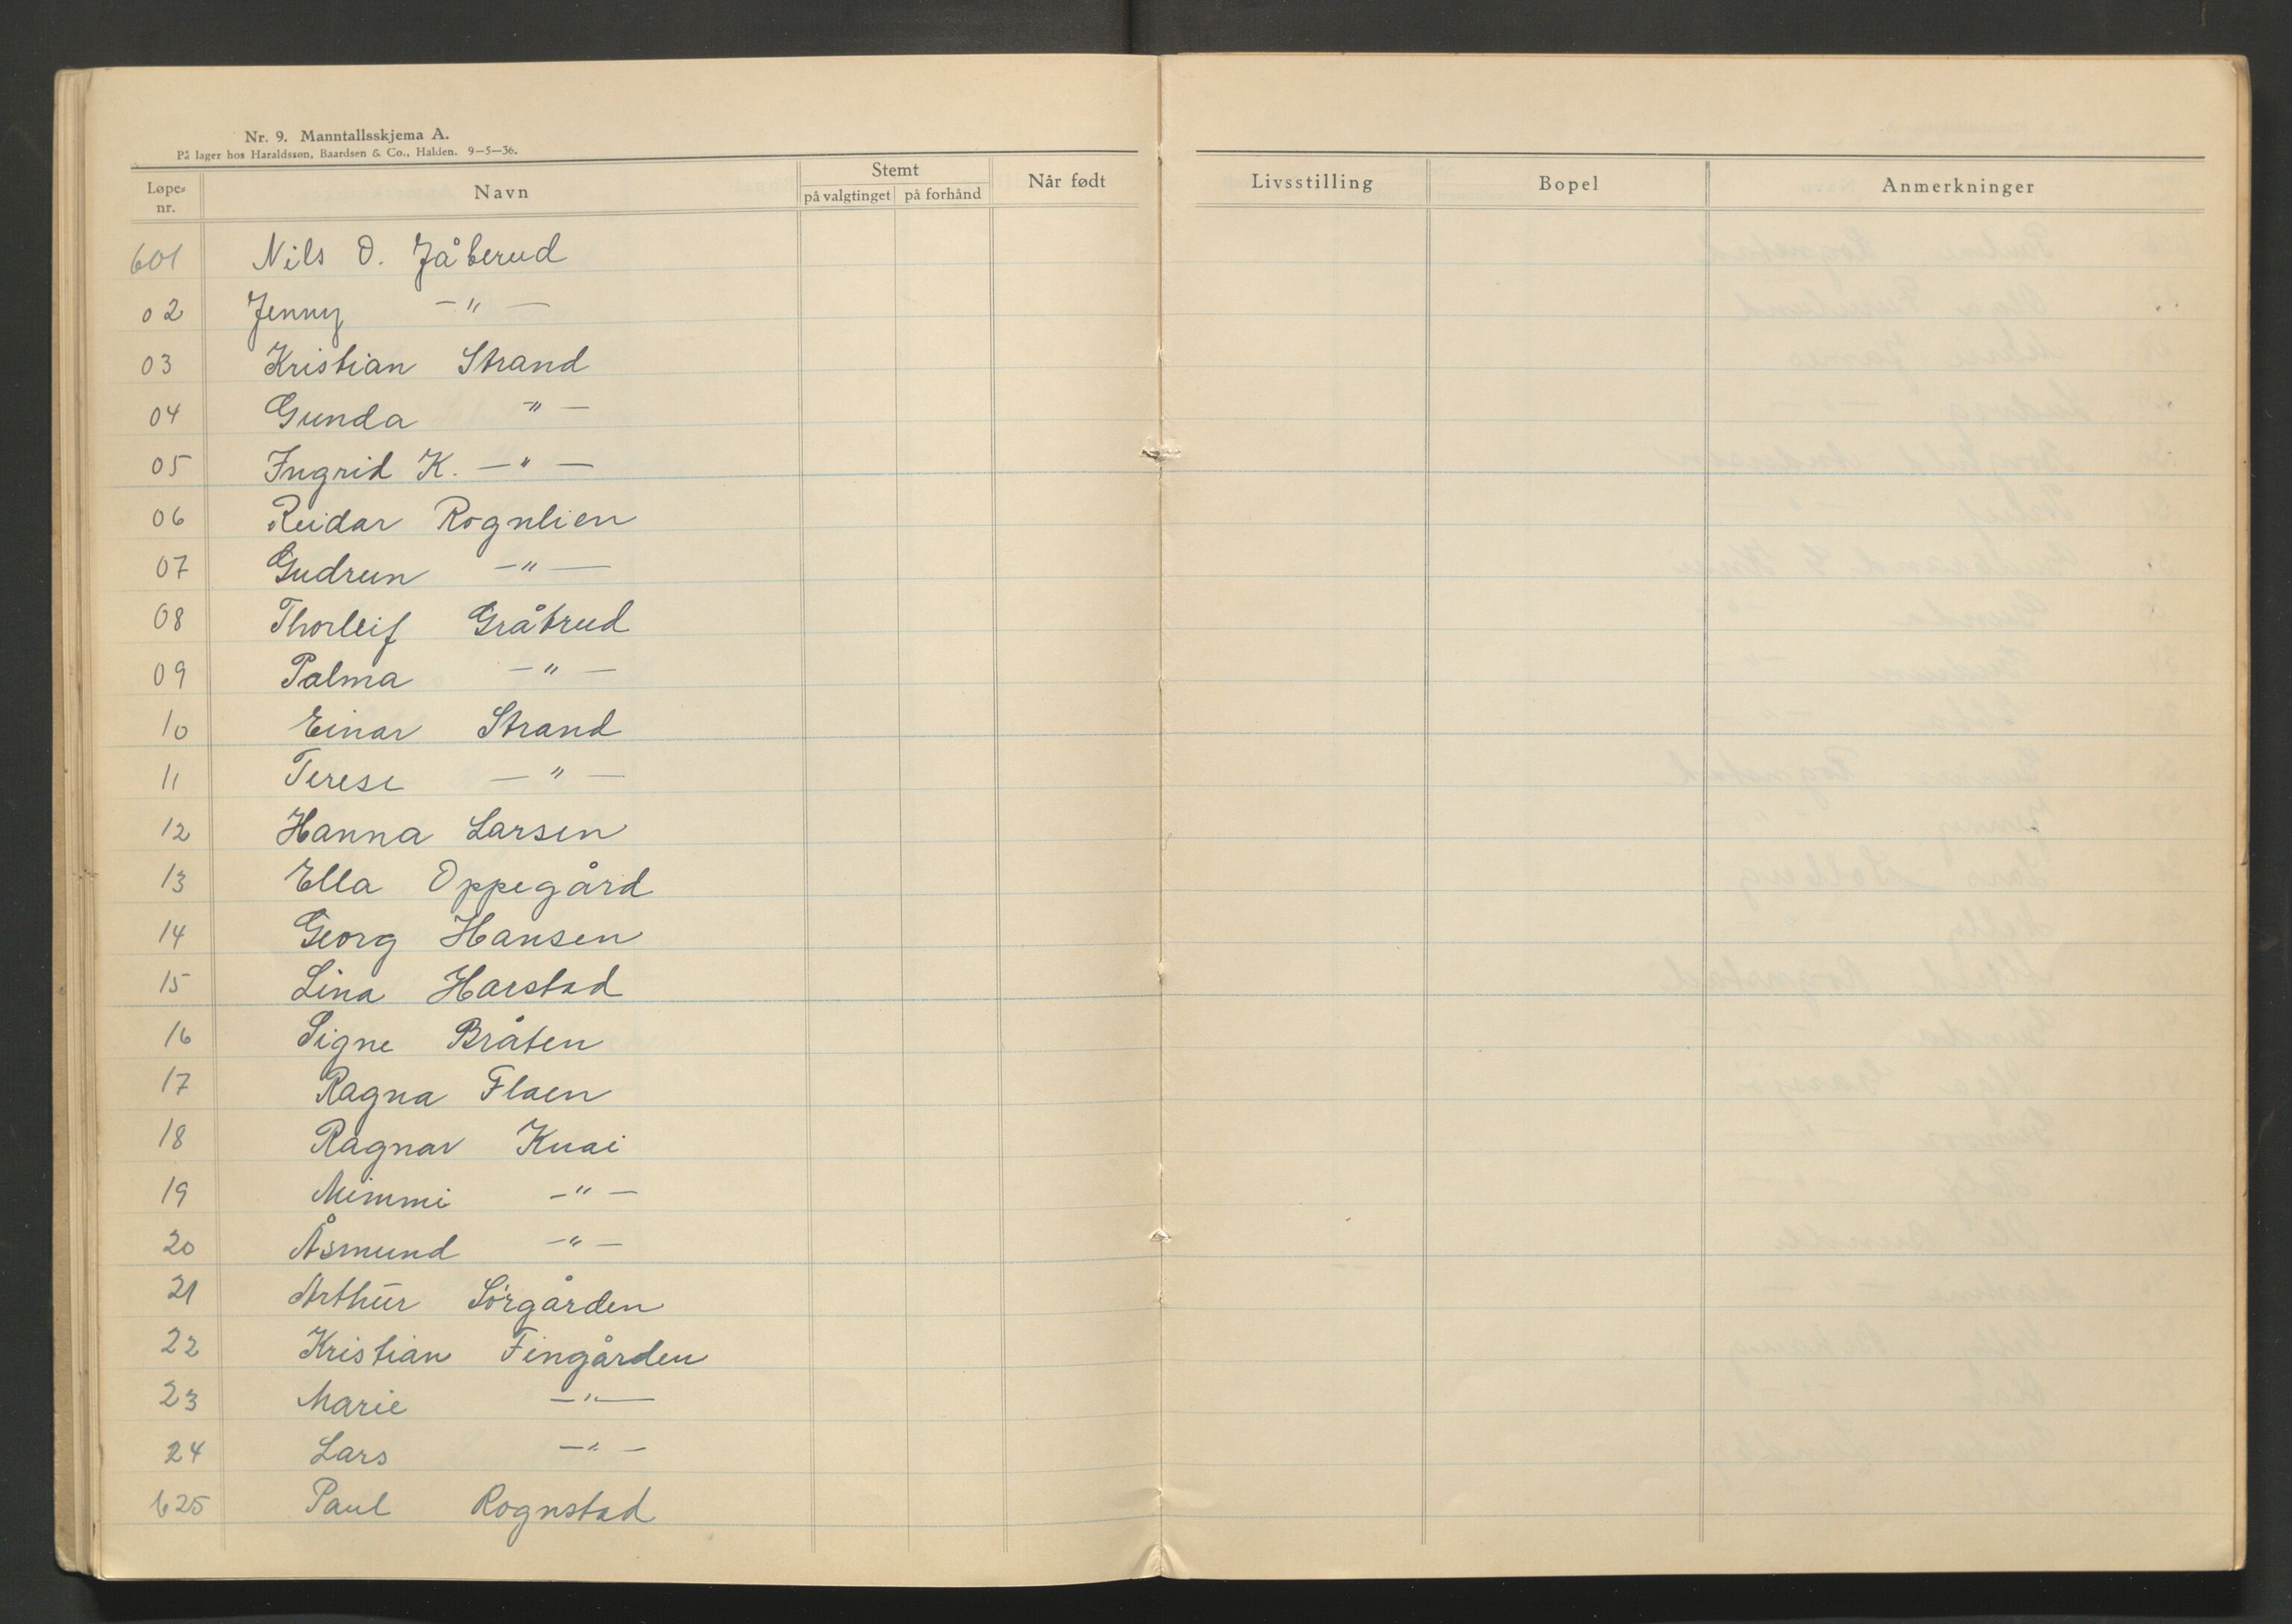 Nr. 9. Manntallsskjema A.
På lager hos Haraldssøn, Baardsen & Co., Halden. 9—5—36.
Løpe- nr. Navn Stemt på valgtinget på forhånd Når født Livsstilling Bopel Anmerkninger
601 Nils O. Jåberud
02 Jenny —"—
03 Kristian Strand
04 Gunda "—
05 Ingrid K. —"—
06 Reidar Rognlien
07 Gudrun —"—
08 Thorleif Gråbrud
09 Palma —"—
10 Einar Strand
11 Terese —"—
12 Hanna Larsen
13 Ella Oppegård
14 Georg Hansen
15 Lina Harstad
16 Signe Bråten
17 Ragna Flaen
18 Ragnar Knai
19 Mimmi —"—
20 Åsmund —"—
21 Arthur Sörgården
22 Kristian Fingården
23 Marie —"—
24 Lars —"—
625 Paul Rognstad